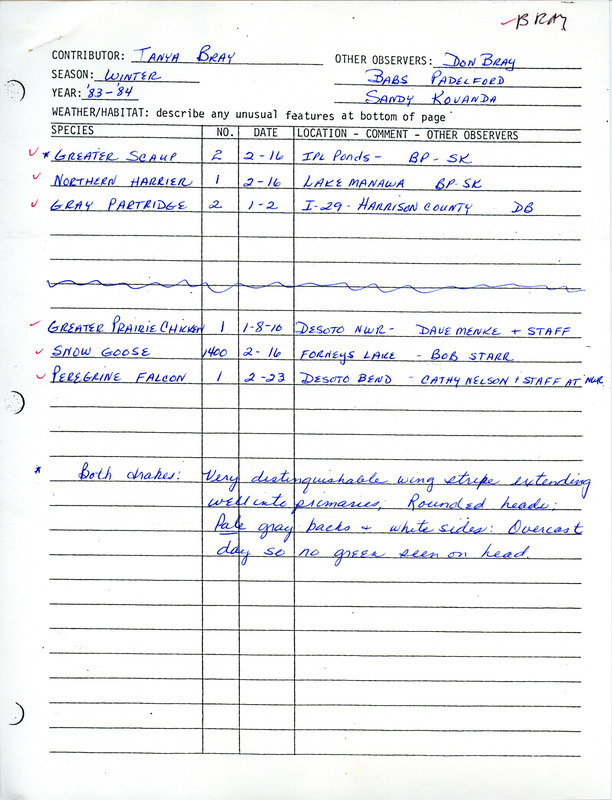 ✓BRAY
CONTRIBUTOR: TANYA BRAY OTHER OBSERVERS: DON BRAY
SEASON: WINTER BABS PADELFORD
YEAR: '83-'84 SANDY KOVANDA
WEATHER/HABITAT: describe any unusual features at bottom of page
SPECIES NO. DATE LOCATION - COMMENT - OTHER OBSERVERS
✓ * GREATER SCAUP 2 2-16 IPL PONDS - BP-SK
✓ NORTHERN HARRIER 1 2-16 LAKE MANAWA BP-SK
✓ GRAY PARTRIDGE 2 1-2 I-29 - HARRISON COUNTY DB
✓ GREATER PRAIRIE CHICKEN 1 1-8-10 DESOTO NWR - DAVE MENKE + STAFF
✓ SNOW GOOSE 1400 2-16 FORNEYS LAKE - BOB STARR
✓ PEREGRINE FALCON 1 2-23 DESOTO BEND - CATHY NELSON + STAFF AT NWR
* Both drakes: Very distinquishable wing stripe extending
well into primaries, Rounded heads:
Pale gray backs + white sides: Overcast
day so no green seen on head.